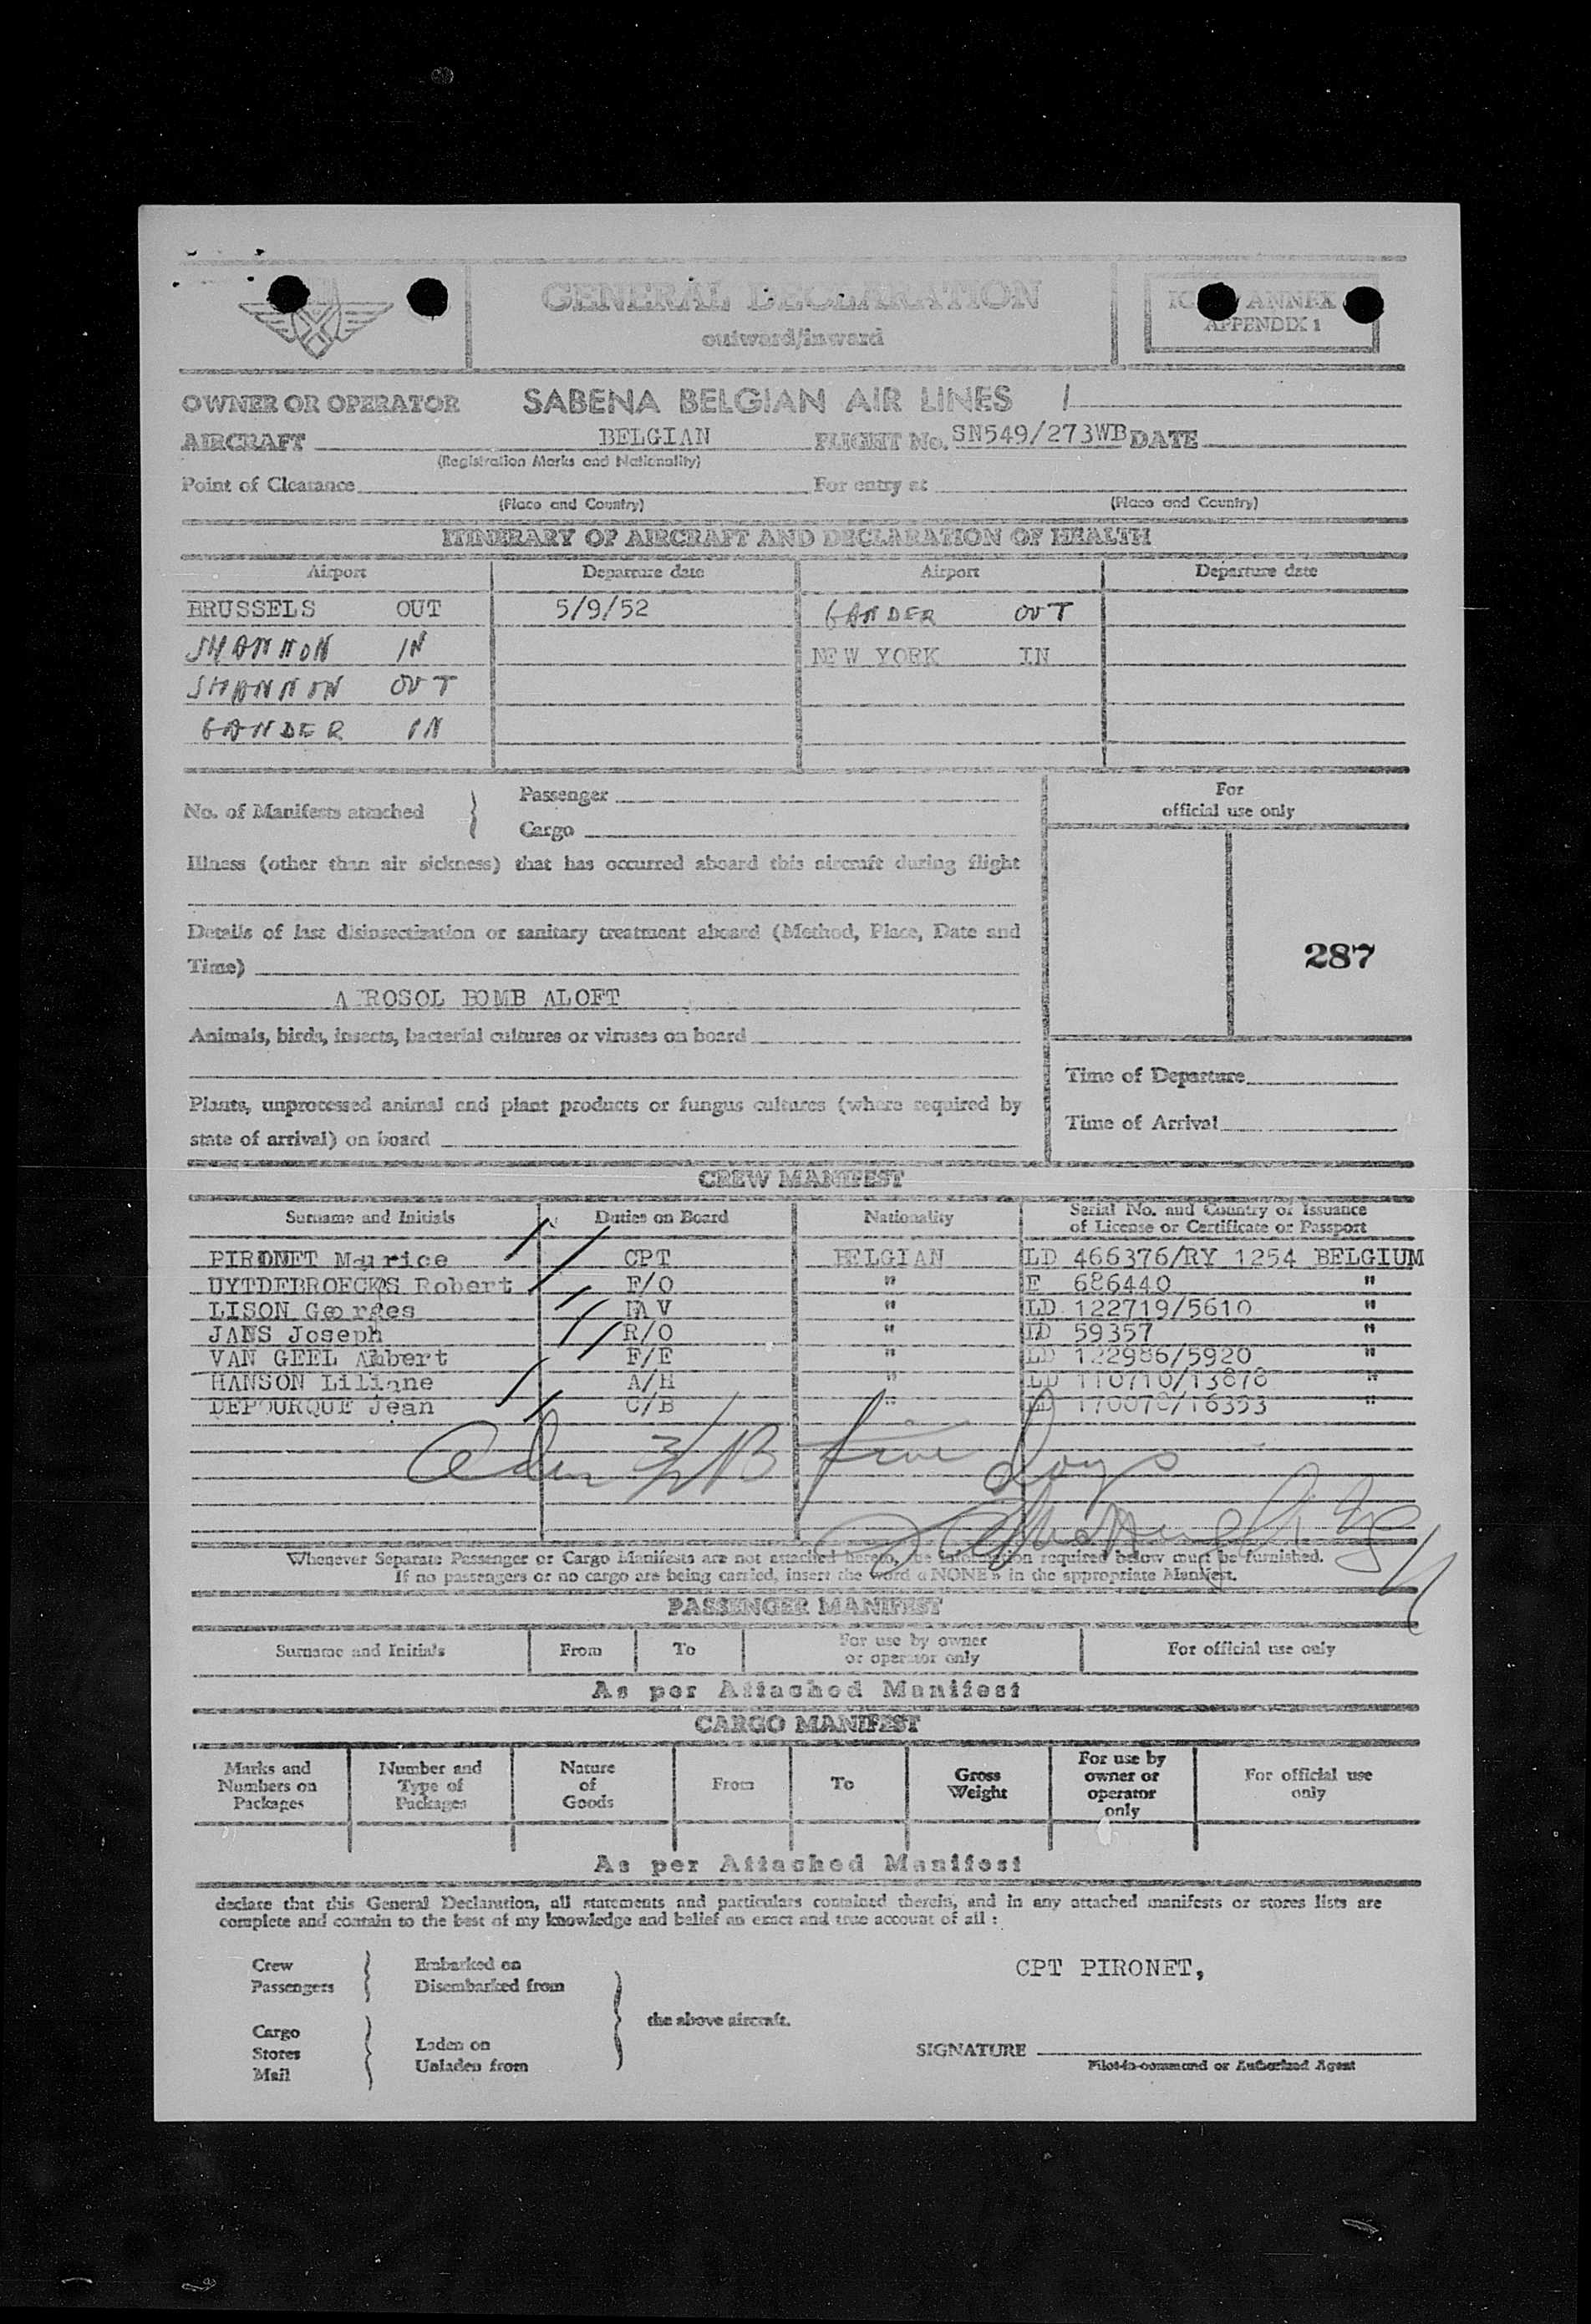 GENERAL DECLARATION
outward/inward
ANNEX
APPENDIX 1
OWNER OR OPERATOR SABENA BELGIAN AIR LINES
AIRCRAFT BELGIAN FLIGHT No. SN549/273WB DATE
(Registration Marks and Nationality)
Point of Clearance For entry at
(Place and Country) (Place and Country)
ITINERARY OF AIRCRAFT AND DECLARATION OF HEALTH
Airport Departure date Airport Departure date
BRUSSELS OUT 5/9/52 GANDER OUT
SHANNON IN NEW YORK IN
SHANNON OUT
GANDER IN
No. of Manifests attached } Passenger
Cargo
For
official use only
Illness (other than air sickness) that has occurred aboard this aircraft during flight
Details of last disinsectization or sanitary treatment aboard (Method, Place, Date and
Time)
287
AEROSOL BOMB ALOFT
Animals, birds, insects, bacterial cultures or viruses on board
Time of Departure
Plants, unprocessed animal and plant products or fungus cultures (where required by
Time of Arrival
state of arrival) on board
CREW MANIFEST
Surname and Initials Duties on Board Nationality Serial No. and Country of Issuance
of License or Certificate or Passport
PIRONET Maurice CPT BELGIAN LD 466376/RY 1254 BELGIUM
UYTDEBROECKS Robert F/O " E 686440 "
LISON Georges NAV " LD 122719/5610 "
JANS Joseph R/O " LD 59357 "
VAN GEEL Albert F/E " LD 122986/5920 "
HANSON Liliane A/H " LD 110710/13878 "
DEPOURQUE Jean C/B " LD 170078/16353 "
Whenever Separate Passenger or Cargo Manifests are not attached hereto, the information required below must be furnished.
If no passengers or no cargo are being carried, insert the word «NONE» in the appropriate Manifest.
PASSENGER MANIFEST
Surname and Initials From To For use by owner
or operator only For official use only
As per Attached Manifest
CARGO MANIFEST
Marks and Numbers on Packages Number and Type of Packages Nature of Goods From To Gross Weight For use by owner or operator only For official use only
As per Attached Manifest
declare that this General Declaration, all statements and particulars contained therein, and in any attached manifests or stores lists are
complete and contain to the best of my knowledge and belief an exact and true account of all :
Crew
Passengers } Embarked on
Disembarked from
CPT PIRONET,
the above aircraft.
Cargo
Stores
Mail } Laden on
Unladen from
SIGNATURE
Pilot-in-command or Authorized Agent